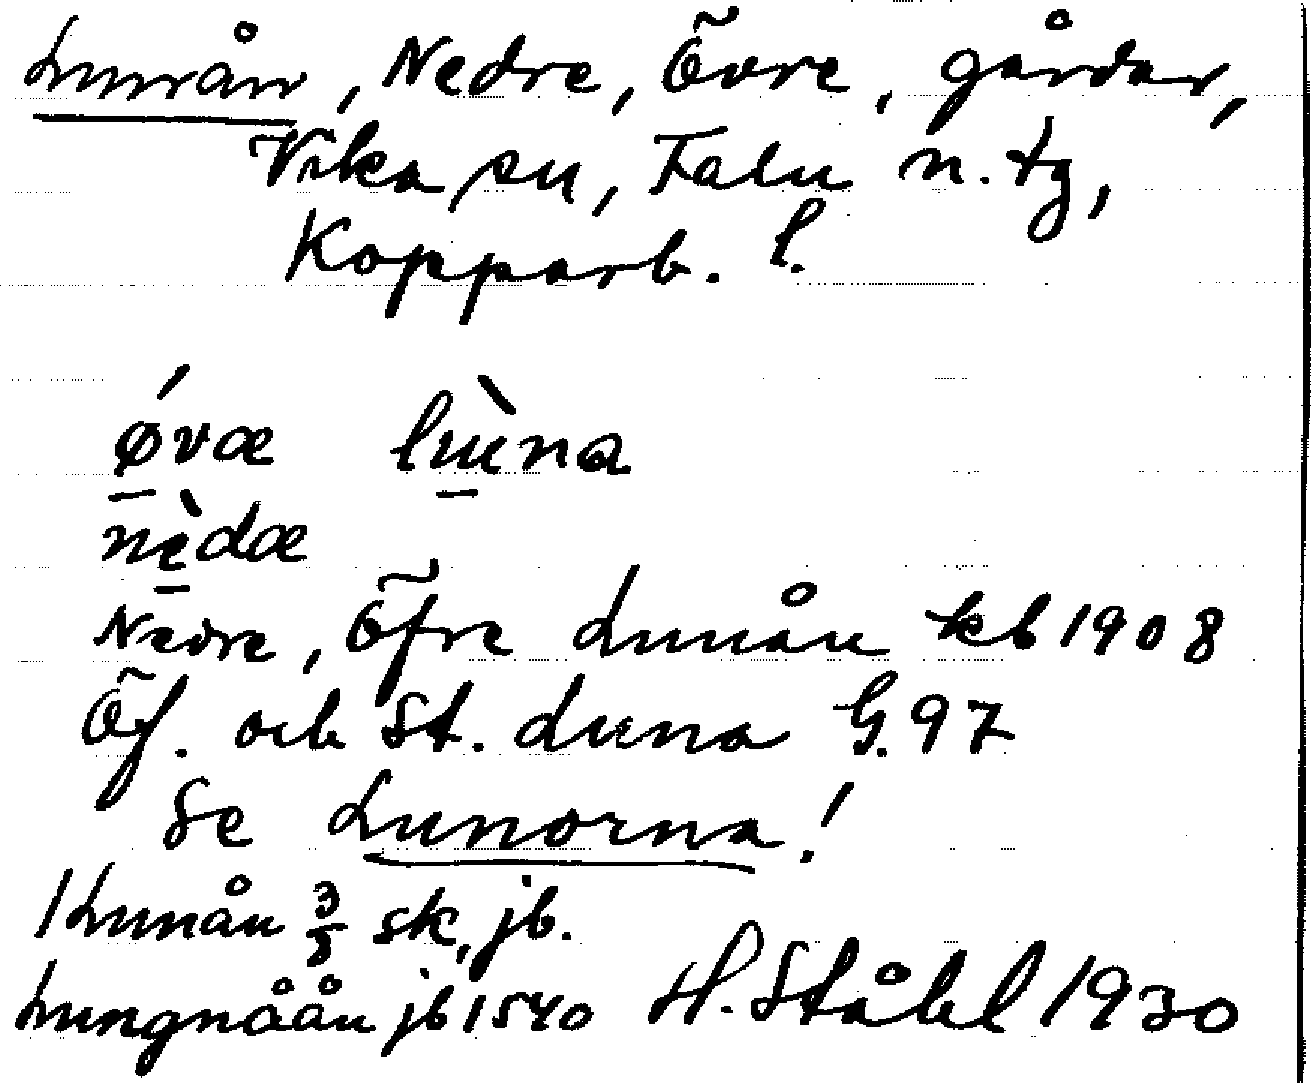 Lunån, Nedre, Övre, gårdar,
Vika sn, Falu n. tg,
Kopparb. l.
ǿvæ lùna
nèdæ
Nedre, Öfre Lunån kb 1908
Öf. och St. Luna G. 97
Se Lunorna!
1 Lunån 3/5 sk, jb.
Lungnåån jb 1540 H. Ståhl 1930